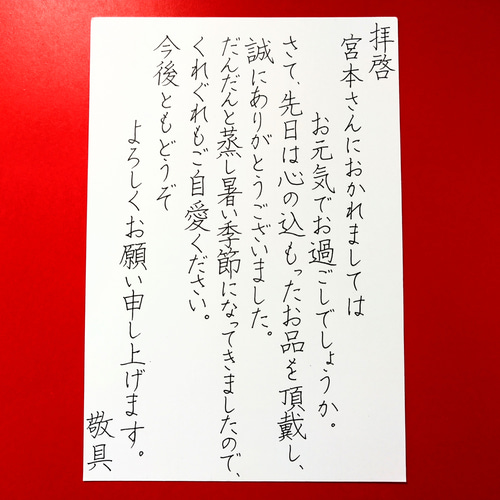 拝啓
宮本さんにおかれましては
お元気でお過ごしでしょうか。
さて、先日は心の込もったお品を頂戴し、
誠にありがとうございました。
だんだんと蒸し暑い季節になってきましたので、
くれぐれもご自愛ください。
今後ともどうぞ
よろしくお願い申し上げます。
敬具